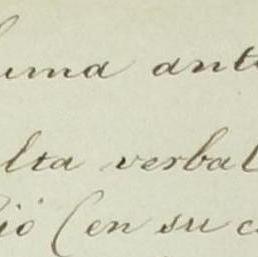 uma ant
lta verbal
ió (en su c